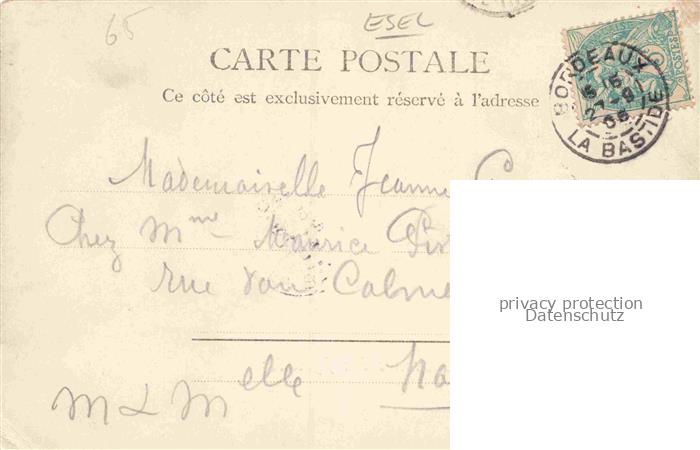 65
ESEL
CARTE POSTALE
Ce côté est exclusivement réservé à l'adresse
BORDEAUX
27-9
06
LA BASTIDE
POSTES
Mademoiselle Jeanne
Chez Mme Maurice
rue
elle
M & M
privacy protection
Datenschutz